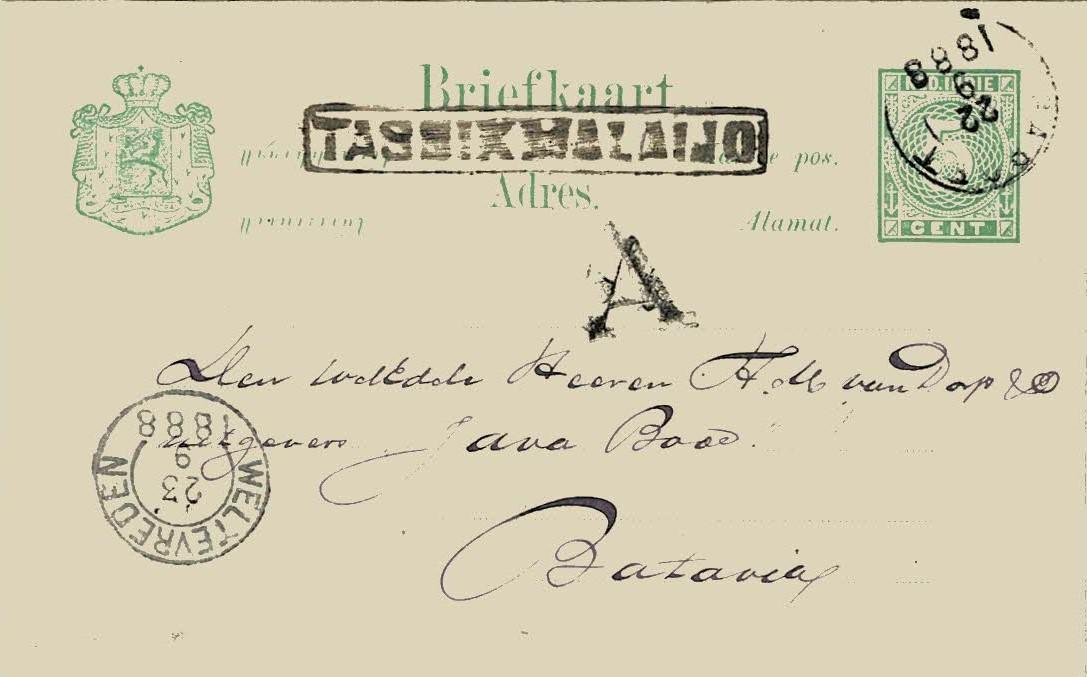 Briefkaart
TASSIKMALAIJO
pos.
Adres.
Alamat.
NED. INDIE
5
CENT
1888
9
22
A
Den WelEdele Heeren H. M. van Dorp & Co
uitgevers Java Bode.
Batavia
WELTEVREDEN
23
9
1888